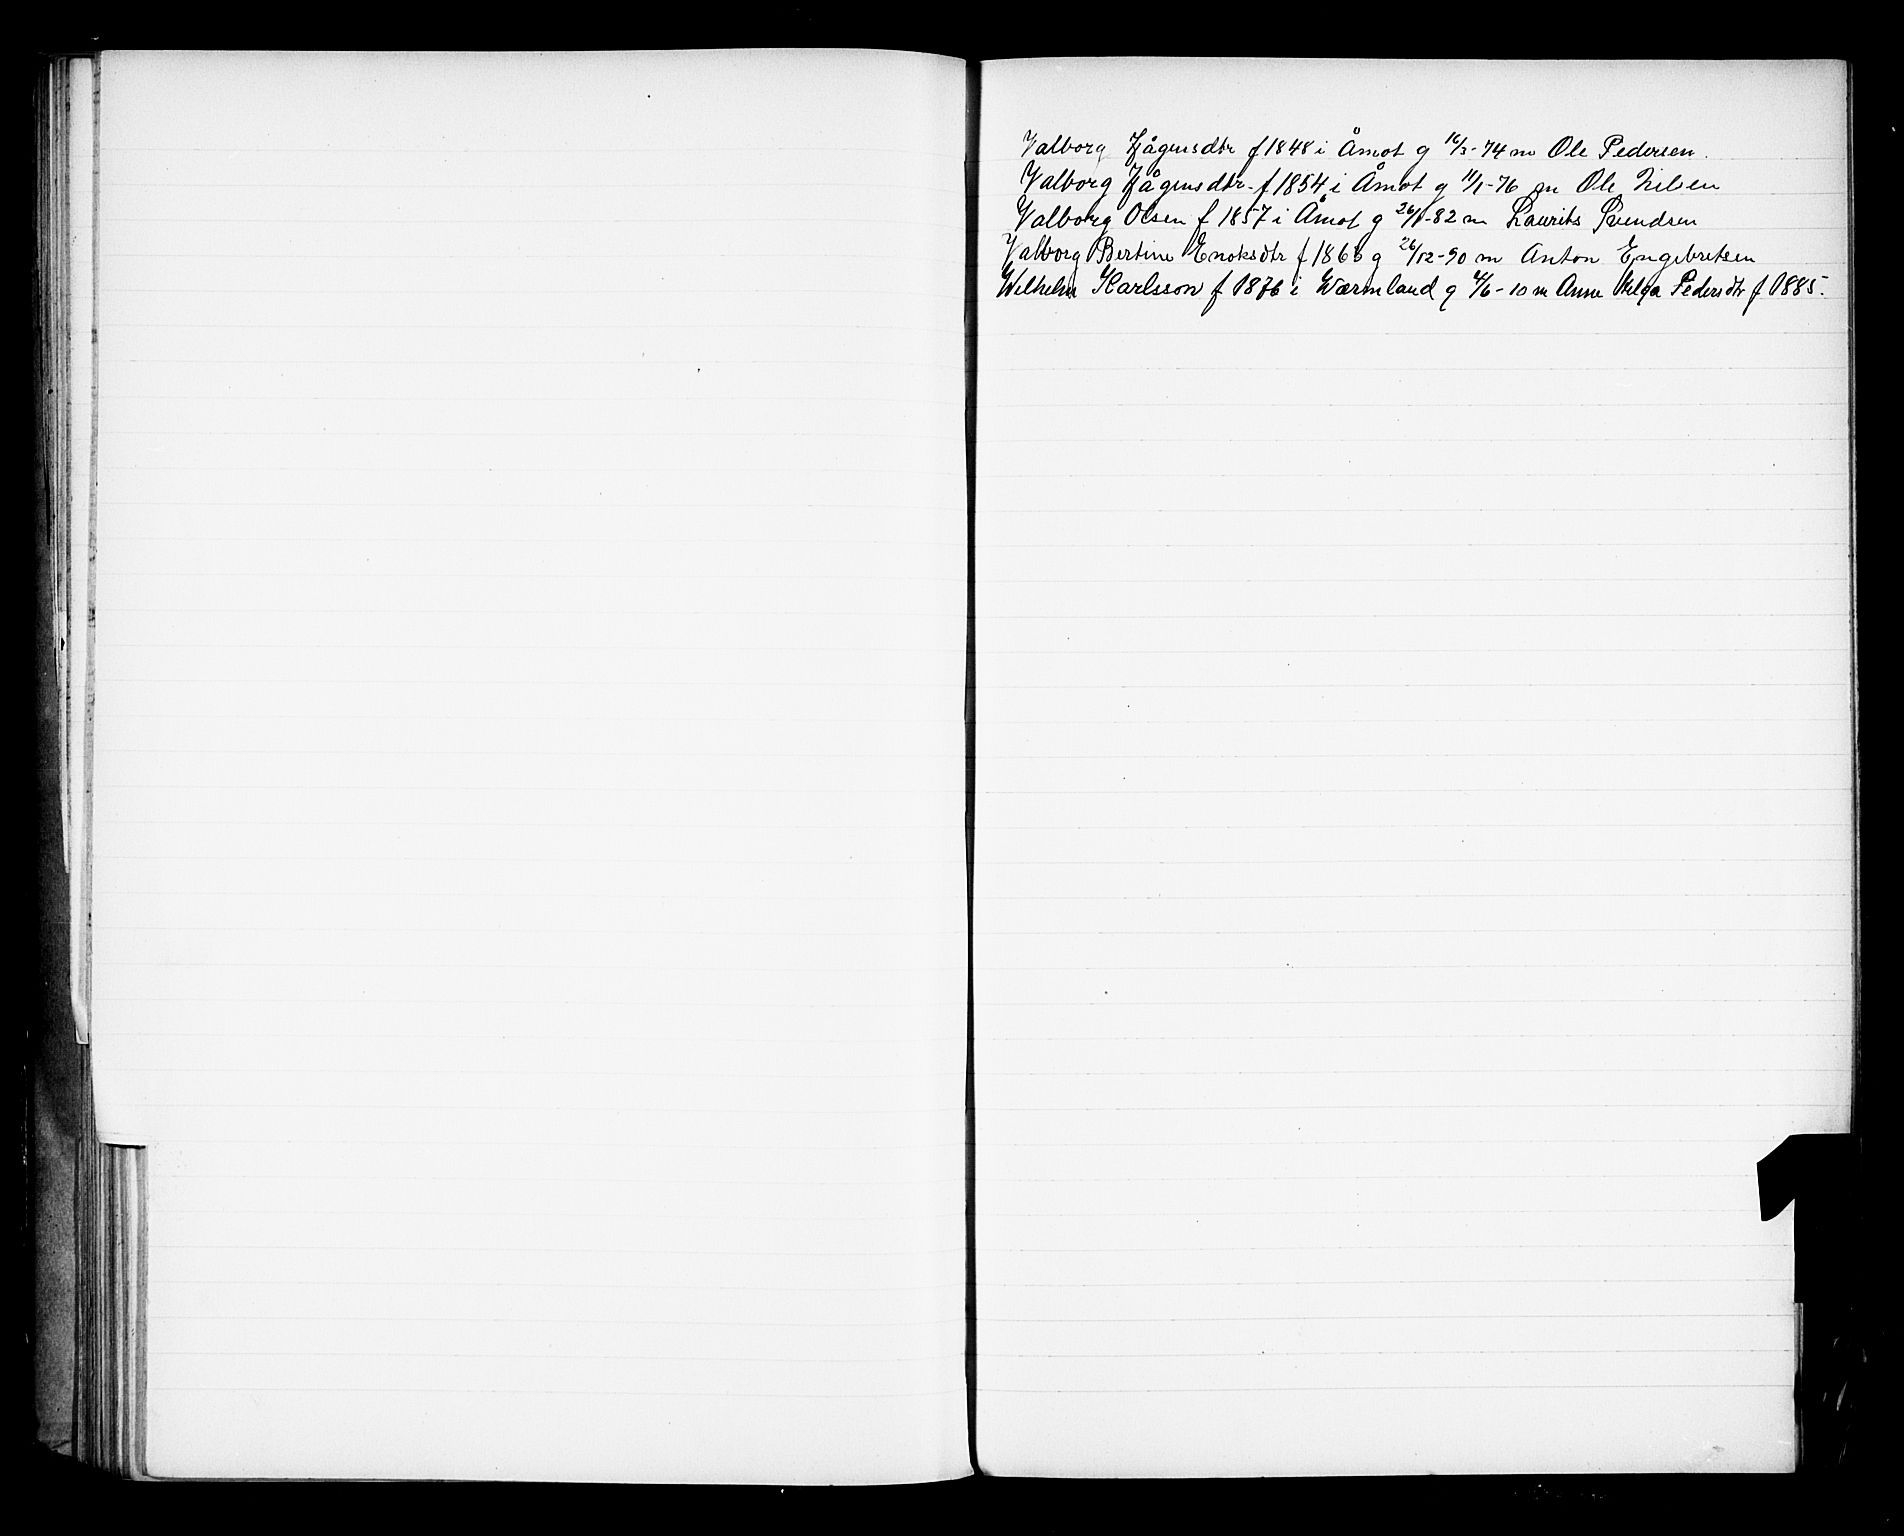 Valborg Hågensdtr f 1848 i Åmot g 16/3-74 m Ole Pedersen.
Valborg Hågensdtr f 1854 i Åmot g 11/1-76 m Ole Nilsen
Valborg Olsen f 1857 i Åmot g 26/1-82 m Laurits Svendsen
Valborg Bertine Enoksdtr f g 26/12-90 m Anton Engebretsen
Wilhelm Karlsson f 1876 i Wærmland g 4/6-10 m Anne Helga Pedersdtr f 1885.